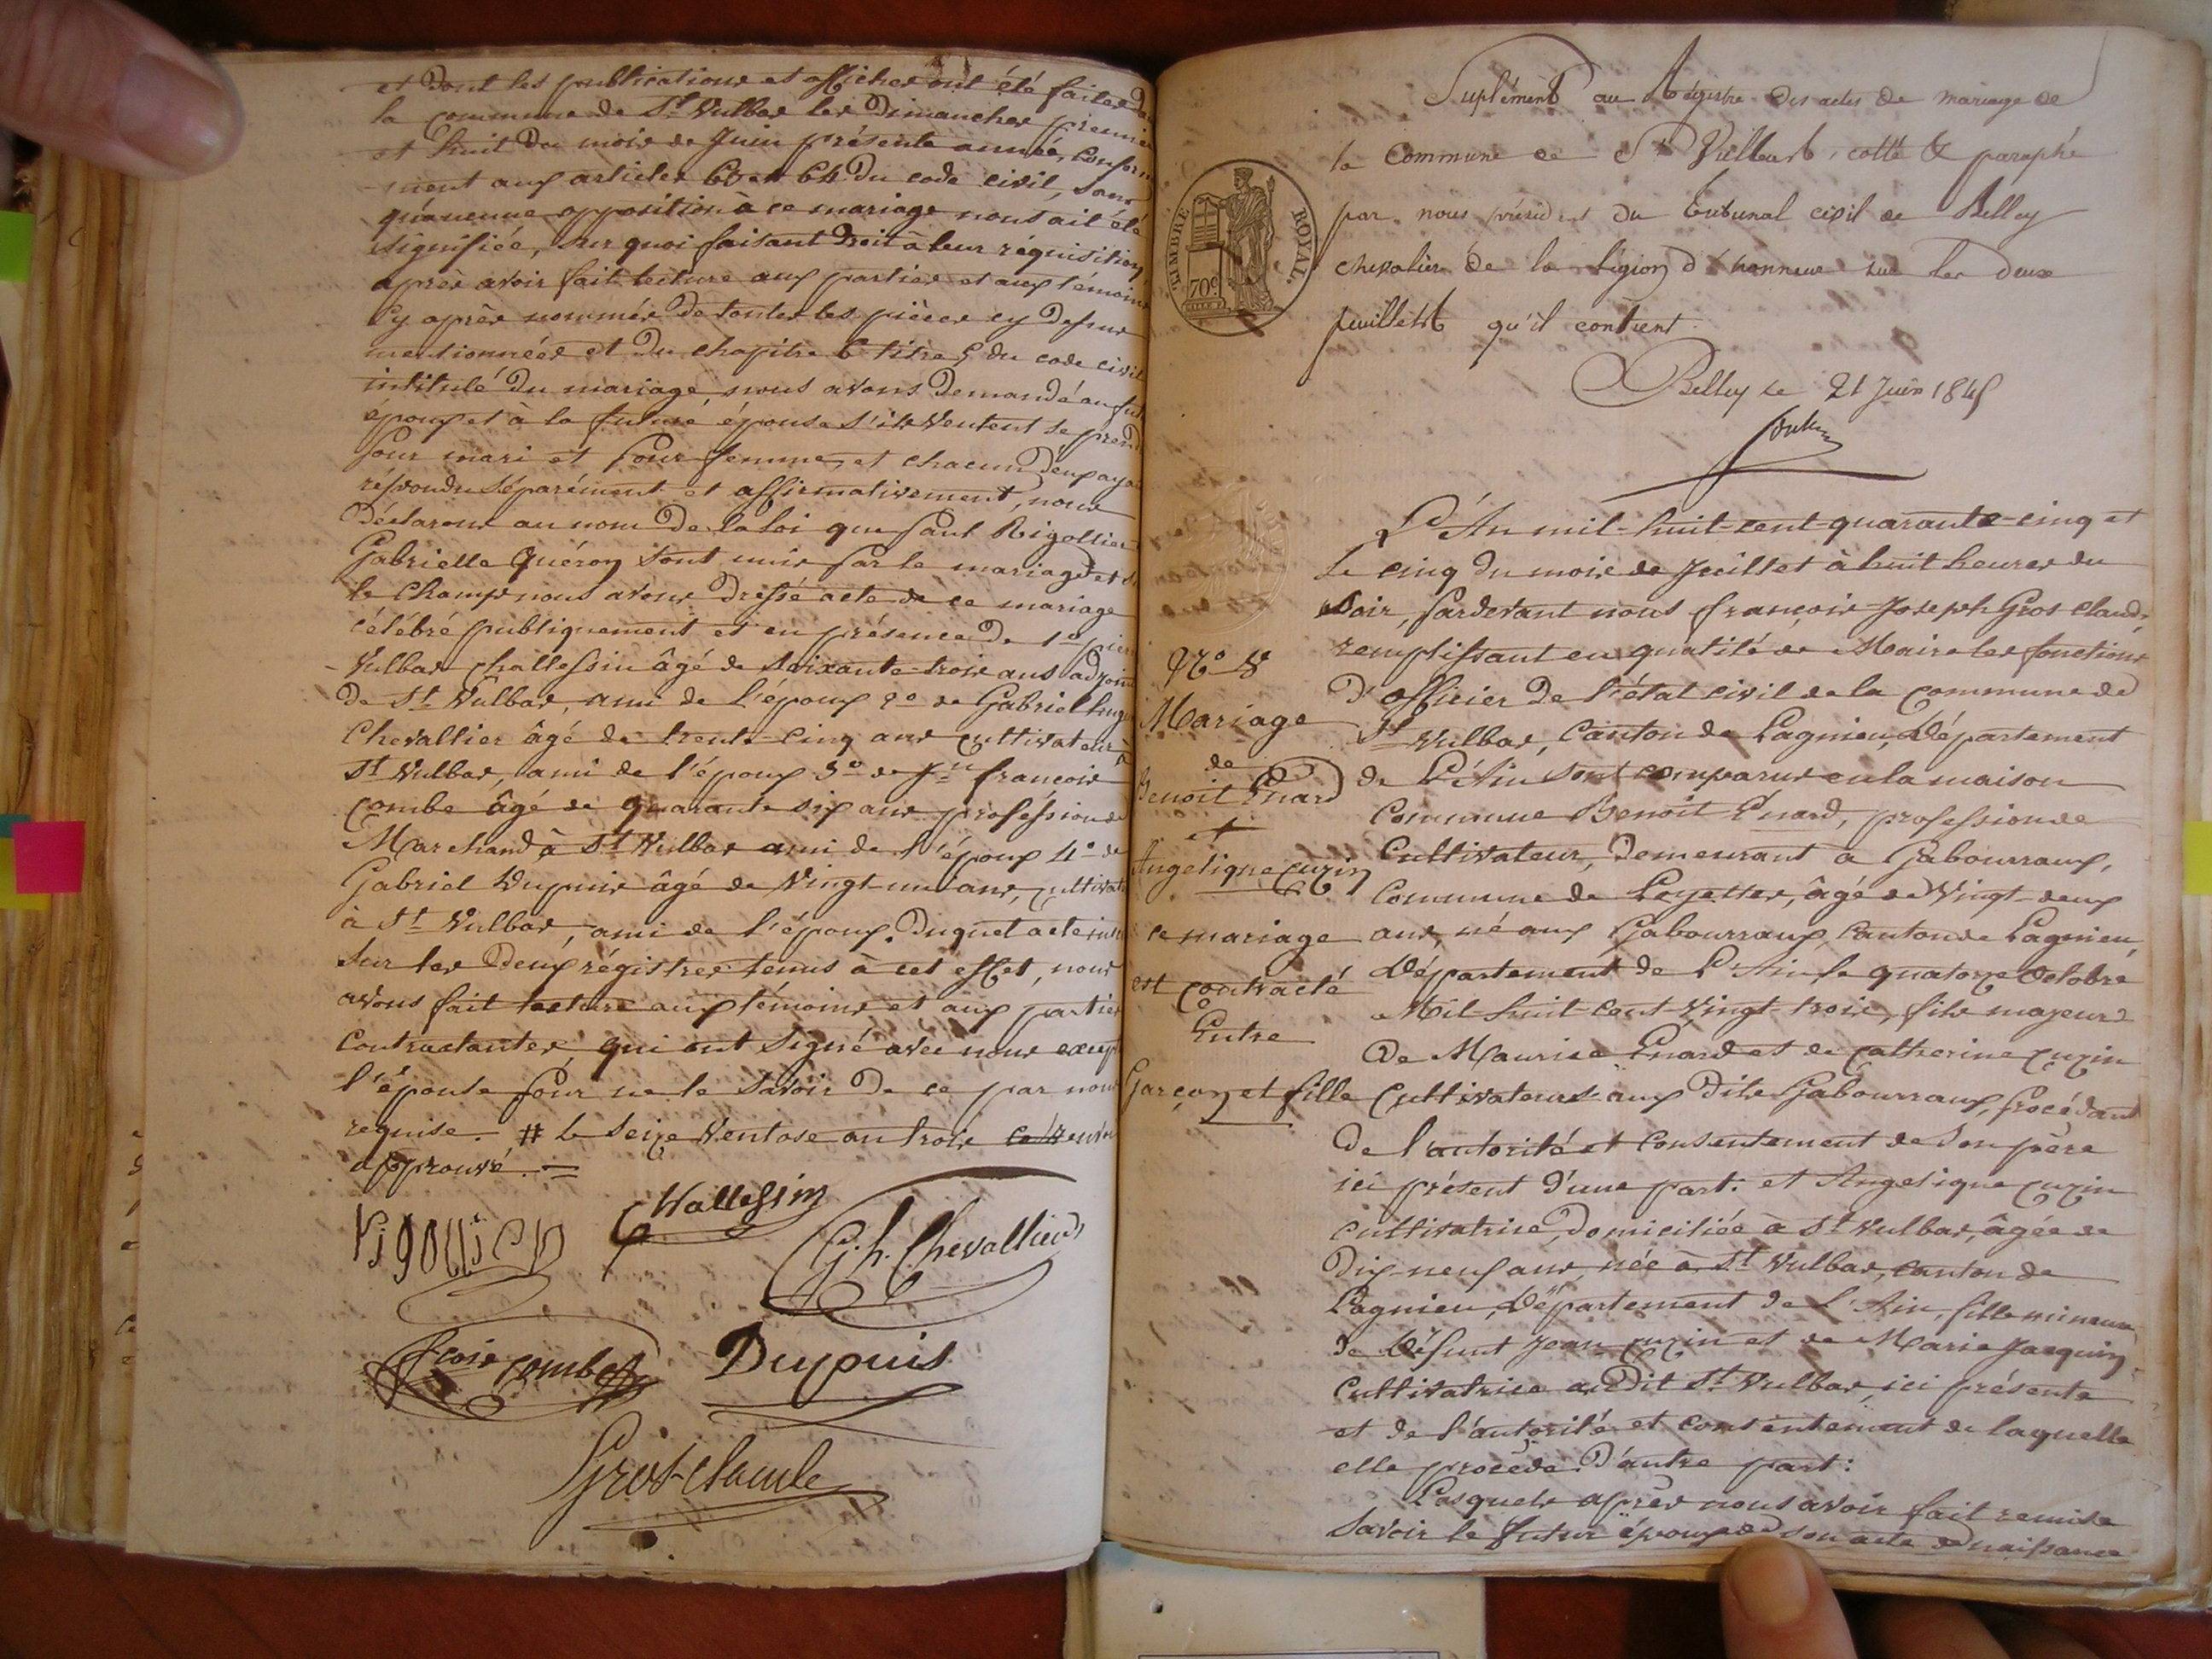 et dont les publications et affiches ont été faites da
la commune de St. Vulbas les dimanches premie
et huit du mois de Juin présente année, conform
-ment aux articles 63 et 64 du code civil, sans
qu'aucune opposition à ce mariage nous ait été
signifiée, sur quoi faisant droit à leur réquisition
après avoir fait lecture aux parties et aux témoins
cy après nommés de toutes les pièces cy dessus
mentionnées et du chapitre 6 titre 5 du code civil
intitulé du mariage, nous avons demandé au fut
époux et à la future épouse s'ils veulent se prend
pour mari et pour femme, et chacun d'eux aya
répondu séparément et affirmativement, nous
déclarons au nom de la loi que Paul Rigollier
Gabrielle Quéron sont unis par le mariage et s
le champ nous avons dressé acte de ce mariage
célébré publiquement et en présence de 1º pier
-Vulbas Challessin âgé de soixante-trois ans adjoint
de St Vulbas, ami de l'époux 2º de Gabriel hug
Chevallier âgé de trente-cinq ans cultivateur à
St Vulbas, ami de l'époux 3º de Jn françois
Combe âgé de quarante six ans profession de
Marchand à St Vulbas ami de l'époux 4º de
Gabriel Dupuis âgé de vingt-un ans, cultivat
à St Vulbas, ami de l'époux. Duquel acte ins
sur les deux régistres tenus à cet effet, nous
avons fait lecture aux témoins et aux parties
contractantes, qui ont signé avec nous excep
l'épouse pour ne le savoir de ce par nous
requise. # le seize Ventose an trois ce renv
approuvé. =
Rigollier Challessin G. h. Chevallier
fçois combe Dupuis
Gros-Claude
Suplément au Régistre des actes de mariage de
la Commune de St Vulbas, cotté & paraphé
par nous président du tribunal civil de Belley
chevalier de la Légion d'honneur sur les deux
feuillets qu'il contient.
Belley le 21 Juin 1845
TIMBRE ROYAL
70c
Nº 8
Mariage
de
Benoit Enard
et
Angelique Cuzin
ce mariage
est contracté
Entre
Garçon et fille
L'An mil-huit-cent-quarante-cinq et
le cinq du mois de Juillet à huit heures du
soir, pardevant nous françois-Joseph Gros Claude,
remplissant en qualité de Maire les fonctions
d'officier de l'état civil de la commune de
St Vulbas, Canton de Lagnieu, Département
de L'Ain sont comparus en la maison
Commune Benoit Enard, profession de
Cultivateur, demeurant à Gabourraux,
Commune de Loyettes, âgé de Vingt-deux
ans, né aux Gabourraux Canton de Lagnieu,
Département de L'Ain le quatorze Octobre
Mil-huit-cent-vingt-trois, fils majeur
de Maurice Enard et de Catherine Cuzin
Cultivateurs aux dits Gabourraux, procédant
de l'autorité et consentement de son père
ici présent d'une part: et Angelique Cuzin
cultivatrice, domiciliée à St Vulbas, âgée de
dix-neuf ans, née à St Vulbas, canton de
Lagnieu, Département de L'Ain, fille mineure
de Défunt Jean Cuzin et de Marie Jacquin
Cultivatrice audit St Vulbas, ici présente
et de l'autorité et consentement de laquelle
elle procède. D'autre part:
Lesquels après nous avoir fait remise
savoir le futur époux de son acte de naissance